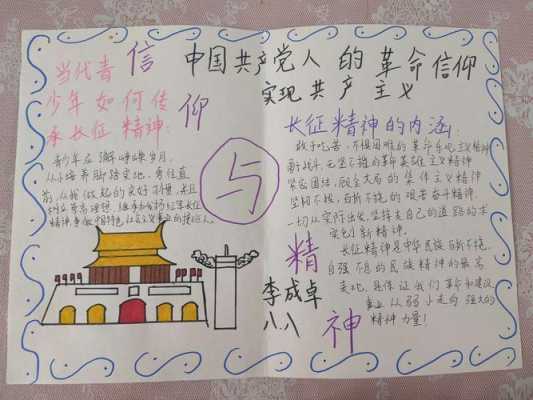 信
仰
与
精
神
中国共产党人的革命信仰
实现共产主义
当代青
少年如何传
承长征精神:
青少年应了解峥嵘岁月,
从小培养脚踏实地、勇往直
前,从我做起的良好习惯,并且
树立崇高理想
长征精神的内涵:
敢于吃苦、不惧困难的革命乐观主义精神
勇于战斗、无坚不摧的革命英雄主义精神
紧密团结、顾全大局的集体主义精神
坚韧不拔、百折不挠的艰苦奋斗精神.
一切从实际出发,坚持走自己的道路的求
实创新精神.
长征精神是中华民族百折不挠,
自强不息的民族精神的最高
表现,是保证我们革命和建设
事业从弱小走向强大的
精神力量!
李成卓
八.八